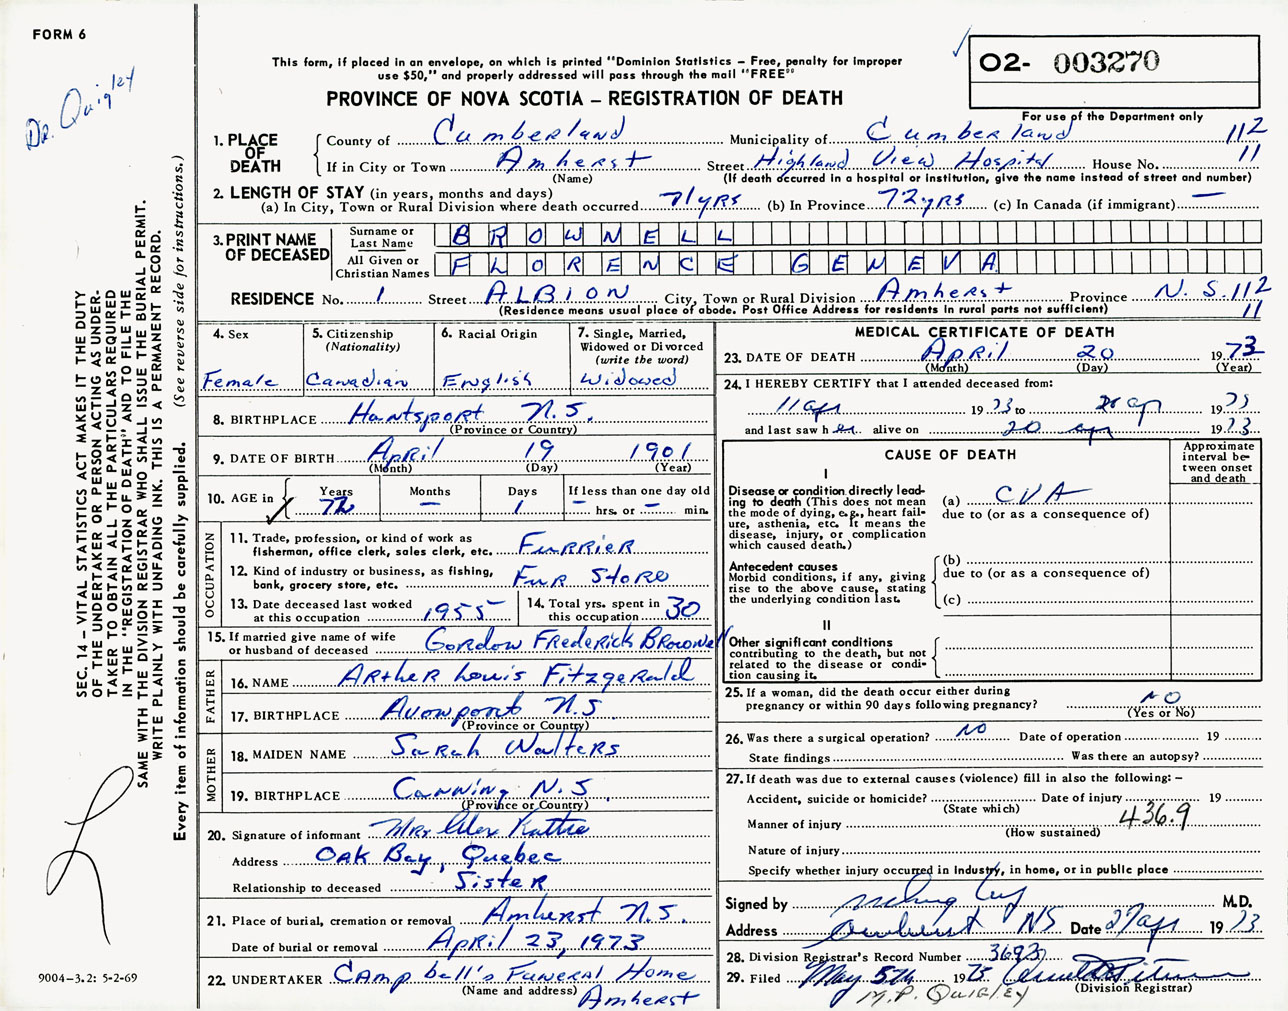 FORM 6
Dr. Quigley
O2- 003270
For use of the Department only
This form, if placed in an envelope, on which is printed "Dominion Statistics – Free, penalty for improper
use $50," and properly addressed will pass through the mail "FREE"
PROVINCE OF NOVA SCOTIA – REGISTRATION OF DEATH
1. PLACE OF DEATH County of Cumberland Municipality of Cumberland 112
If in City or Town Amherst Street Highland View Hospital House No. 11
(Name) (If death occurred in a hospital or institution, give the name instead of street and number)
2. LENGTH OF STAY (in years, months and days)
(a) In City, Town or Rural Division where death occurred 71 yrs (b) In Province 72 yrs (c) In Canada (if immigrant) —
3. PRINT NAME OF DECEASED Surname or Last Name BROWNELL
All Given or Christian Names FLORENCE GENEVA
RESIDENCE No. 1 Street ALBION City, Town or Rural Division Amherst Province N.S. 112
(Residence means usual place of abode. Post Office Address for residents in rural parts not sufficient) 11
4. Sex
Female
5. Citizenship
(Nationality)
Canadian
6. Racial Origin
English
7. Single, Married,
Widowed or Divorced
(write the word)
Widowed
8. BIRTHPLACE Hantsport N.S.
(Province or Country)
9. DATE OF BIRTH April 19 1901
(Month) (Day) (Year)
10. AGE in Years Months Days If less than one day old
72 — 1 — hrs. or — min.
OCCUPATION
11. Trade, profession, or kind of work as
fisherman, office clerk, sales clerk, etc. Furrier
12. Kind of industry or business, as fishing,
bank, grocery store, etc. Fur Store
13. Date deceased last worked
at this occupation 1955
14. Total yrs. spent in
this occupation 30
15. If married give name of wife
or husband of deceased Gordon Frederick Brownell
FATHER
16. NAME Arther Louis Fitzgerald
17. BIRTHPLACE Avonport N.S.
(Province or Country)
MOTHER
18. MAIDEN NAME Sarah Walters
19. BIRTHPLACE Canning N.S.
(Province or Country)
20. Signature of informant Mrs Alex
Address Oak Bay, Quebec
Relationship to deceased Sister
21. Place of burial, cremation or removal Amherst N.S.
Date of burial or removal April 23, 1973
22. UNDERTAKER Campbell's Funeral Home
(Name and address) Amherst
MEDICAL CERTIFICATE OF DEATH
23. DATE OF DEATH April 20 1973
(Month) (Day) (Year)
24. I HEREBY CERTIFY that I attended deceased from:
11 apr 19 73 to 20 ap 19 73
and last saw h er alive on 20 ap 19 73
CAUSE OF DEATH
Approximate
interval be-
tween onset
and death
I
Disease or condition directly lead-
ing to death (This does not mean
the mode of dying, e.g., heart fail-
ure, asthenia, etc. It means the
disease, injury, or complication
which caused death.)
(a) CVA
due to (or as a consequence of)
Antecedent causes
Morbid conditions, if any, giving
rise to the above cause, stating
the underlying condition last.
(b)
due to (or as a consequence of)
(c)
II
Other significant conditions
contributing to the death, but not
related to the disease or condi-
tion causing it.
25. If a woman, did the death occur either during
pregnancy or within 90 days following pregnancy? NO
(Yes or No)
26. Was there a surgical operation? NO Date of operation 19
State findings Was there an autopsy?
27. If death was due to external causes (violence) fill in also the following: –
Accident, suicide or homicide? Date of injury 19
(State which)
Manner of injury 436.9
(How sustained)
Nature of injury
Specify whether injury occurred in industry, in home, or in public place
Signed by M.D.
Address Amherst NS Date 27 apr 19 73
28. Division Registrar's Record Number 3693
29. Filed May 5th 1973
(Division Registrar)
M.P. Quigley
SEC. 14 – VITAL STATISTICS ACT MAKES IT THE DUTY
OF THE UNDERTAKER OR PERSON ACTING AS UNDER-
TAKER TO OBTAIN ALL THE PARTICULARS REQUIRED
IN THE "REGISTRATION OF DEATH" AND TO FILE THE
SAME WITH THE DIVISION REGISTRAR WHO SHALL ISSUE THE BURIAL PERMIT.
WRITE PLAINLY WITH UNFADING INK. THIS IS A PERMANENT RECORD.
Every item of information should be carefully supplied. (See reverse side for instructions.)
9004-3.2: 5-2-69